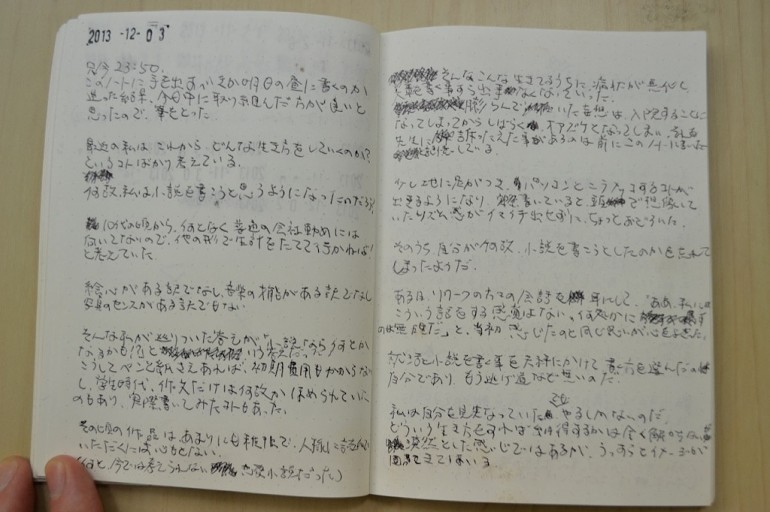 2013 -12- 03
只今23:50。
このノートに手を出すっか 明日の昼に書くのか
迷った結果、今日中に取り出した方が良いと
思ったので、筆をとった。
最近の私は、これから、どんな生き方をしていくのか?
というコトばかり考えている。
何故、私は小説を書こうと思うようになったのだろう
10代の頃から、何となく普通の会社勤めには
向いてないので、他の形で生計をたてて行かねば
と考えていた。
絵心がある訳でなし、音楽の才能がある訳でなし
写真のセンスがある訳でもない
そんな私が辿りついた答えが「小説」ならば何とか
なるかも知れないという考えだった。
こうしてペンと紙さえあれば、初期費用もかからない
し、学生時代、作文だけは何故かほめられていた
のもあり、実際書いてみたコトもあった。
その頃の作品はあまりにも稚拙で、人様に読んで
いただくには心もとない。
(何と、今では考えられない 恋愛小説だった)
そんなこんな生きてるうちに、病状が悪化し
文章を書く事すら出来なくなっていった。
膨らんでいた妄想は、入院することに
なってしまってからしばらくオアズケとなってしまい、
先生に訴ったえた事があるのは前にこのノートに
記している。
少し地に足がつき、パソコンとこう するコトが
出来るようになり、書いていると頭で想像して
いたリズム感がイマイチ出せずに、ちょっとおどろいた。
そのうち自分が何故、小説を書こうとしたのかを忘れて
しまったようだ。
ある日、リワークの方々の会話を耳にして、「ああ、私には
こういう話をする感覚はない。何故かに
のは無駄だ」と、当初感じたのと同じ思いが心をよぎった。
就活と小説を書く事を天秤にかけて、 を選んだのは
自分であり、もう逃げ道など無いのだ。
私は自分を見失なっていた やるしかないのだ。
どういう生き方をすれば納得するかは全く解からないが
漠然とした感じではあるが、うっすらとイメージが
出てきてはいる